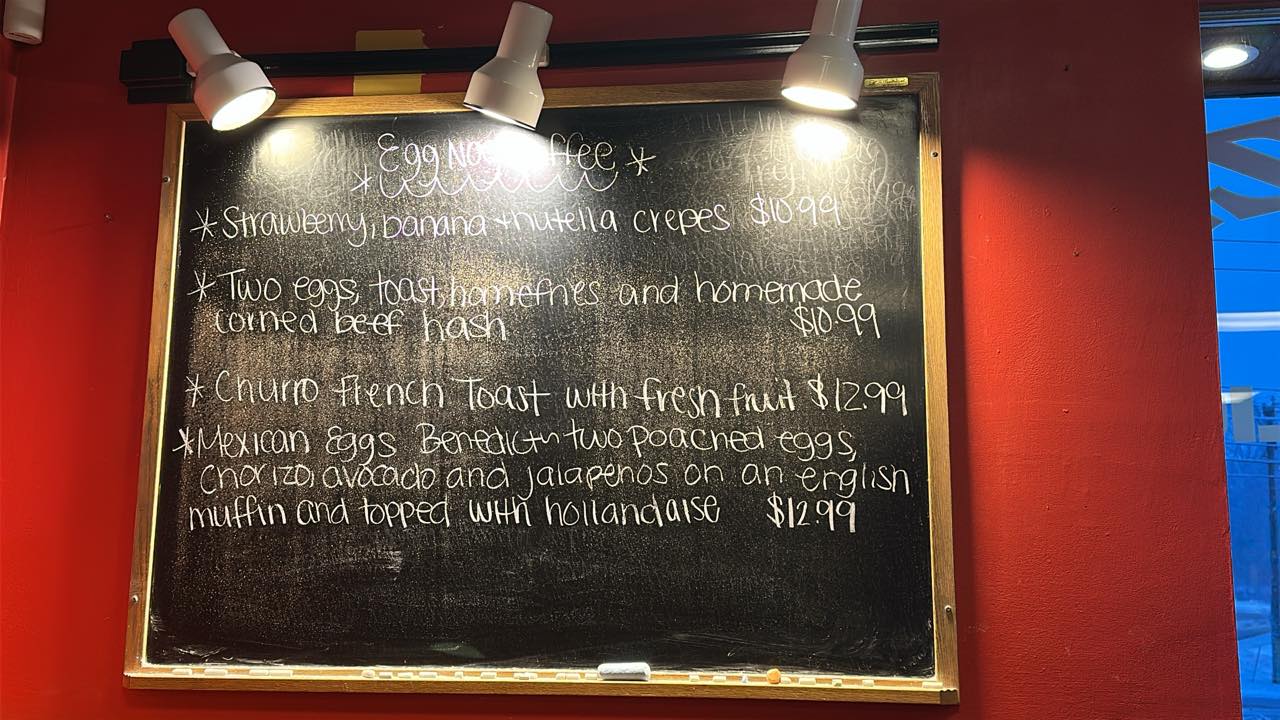 Egg Nog Coffee *
* Strawberry, banana + nutella crepes $10.99
* Two eggs, toast, homefries and homemade
corned beef hash $10.99
* Churro French Toast with fresh fruit $12.99
* Mexican Eggs Benedict ~ two poached eggs,
chorizo, avocado and jalapenos on an english
muffin and topped with hollandaise $12.99